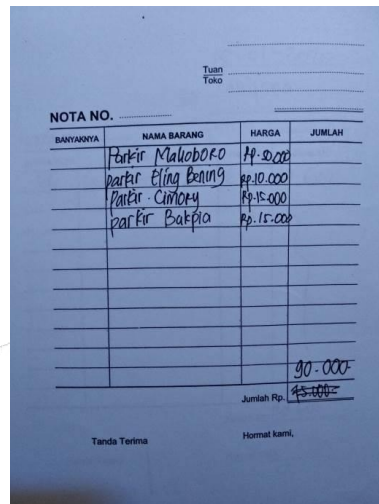 Tuan
Toko
NOTA NO.
BANYAKNYA NAMA BARANG HARGA JUMLAH
Parkir Malioboro Rp. 50.000
parkir Eling Bening Rp.10.000
Parkir . Cimory Rp.15.000
parkir Bakpia Rp. 15.000
90.000-
Jumlah Rp. 75.000=
Tanda Terima Hormat kami,